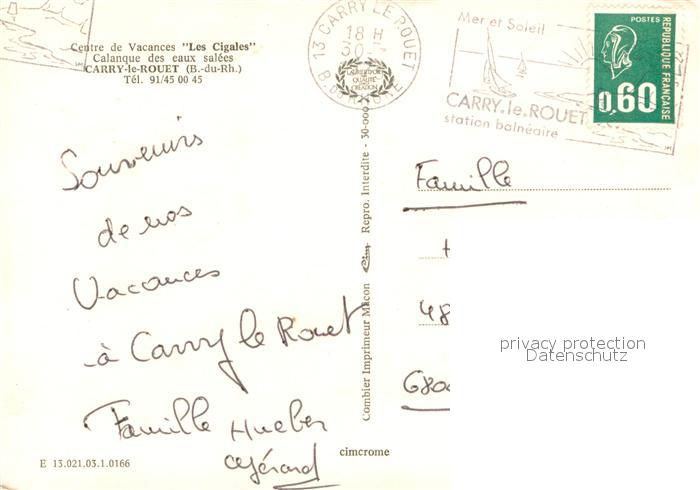 Centre de Vacances "Les Cigales"
Calanque des eaux salées
CARRY-le-ROUET (B.-du-Rh.)
Tél. 91/45 00 45
13 CARRY LE ROUET
18 H
30-7
B. DU RHONE
LAURIER D'OR
DE LA
QUALITÉ
CRÉATION
Mer et Soleil
CARRY.le.ROUET
station balnéaire
POSTES
REPUBLIQUE FRANÇAISE
0,60
Souvenirs
de nos
Vacances
à Carry le Rouet
Famille Hueber
Gérard
E 13.021.03.1.0166
Combier Imprimeur Macon Cim Repro. Interdite - 30-000
cimcrome
Famille
H
48
680
privacy protection
Datenschutz